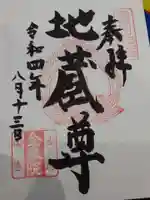 奉拝
地蔵尊
令和四年
八月十三日